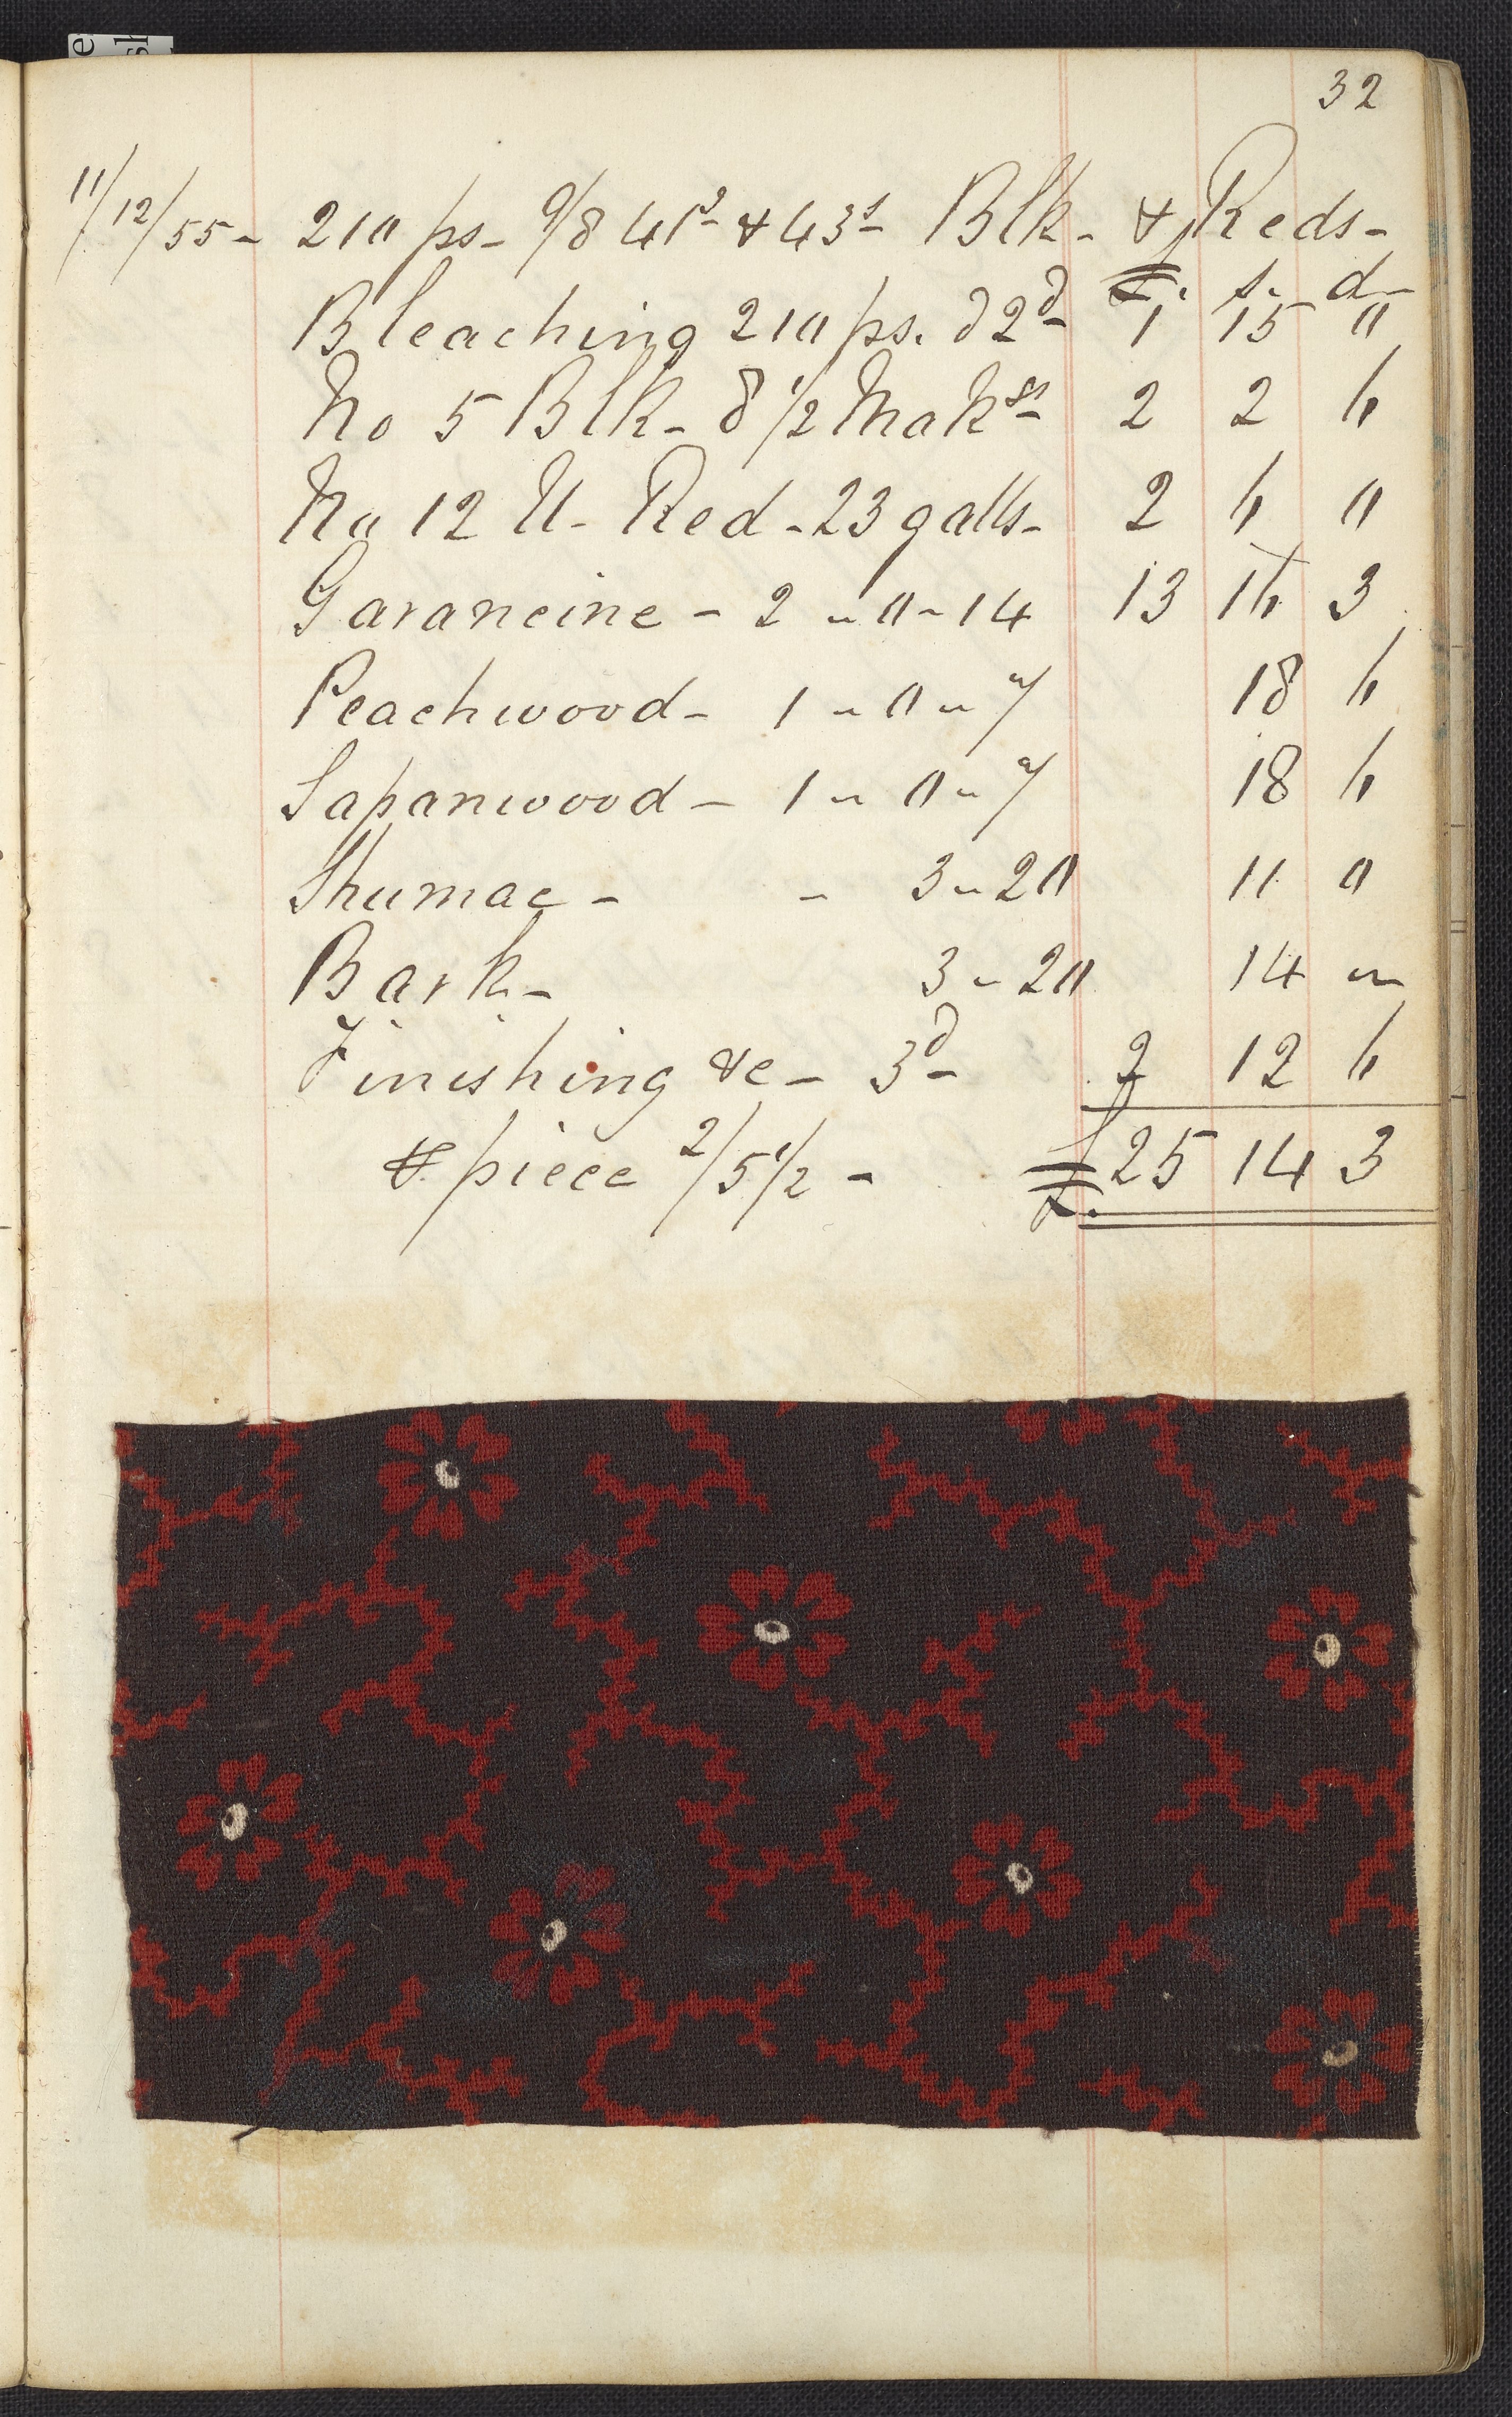 32
11/12/55 - 210 ps - 9/8 41s & 43s Blk - & Reds -
£. s. d
Bleaching 210 ps. @ 2d 1 15 0
No 5 Blk - 8 1/2 2 2 6
No 12 U - Red - 23 galls - 2 6 0
Garancine - 2 " 0 " 14 13 16 3
Peachwood - 1 " 0 " 7 18 6
Sapanwood - 1 " 0 " 7 18 6
Shumac - - 3 " 20 11 0
Bark - 3 " 20 14 "
Finishing &c - 3d - 2 12 6
⅌ piece 2/5 1/2 - £ 25 14 3